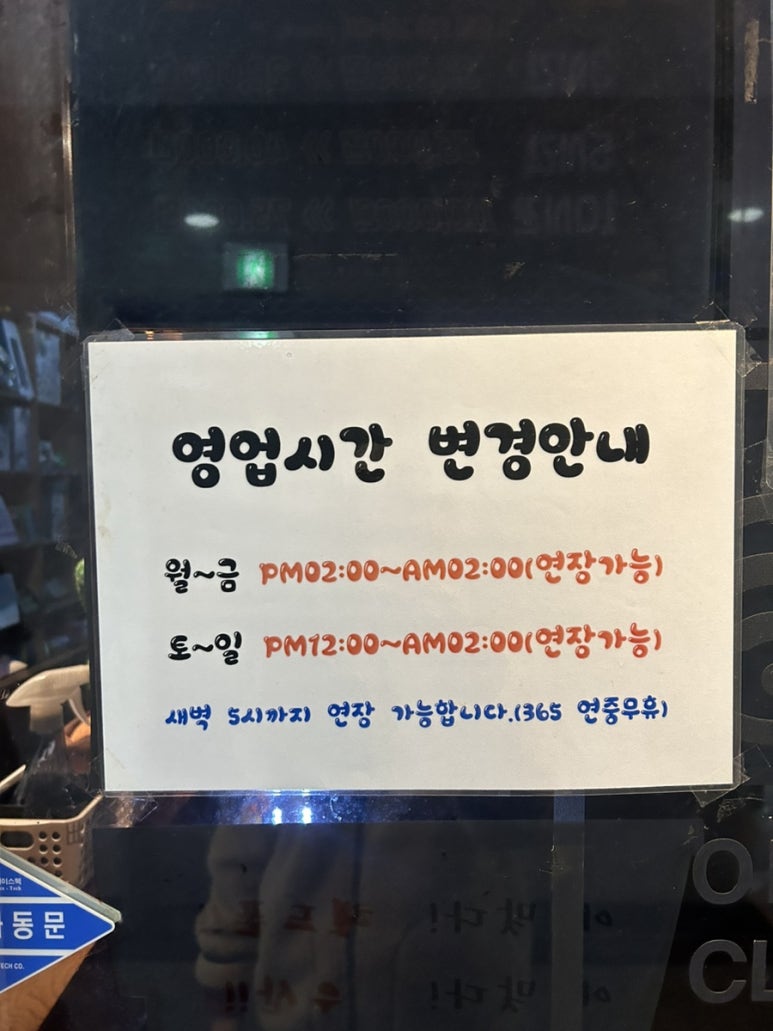 영업시간 변경안내
월~금 PM02:00~AM02:00(연장가능)
토~일 PM12:00~AM02:00(연장가능)
새벽 5시까지 연장 가능합니다.(365 연중무휴)
동문
TECH CO.
O
CL